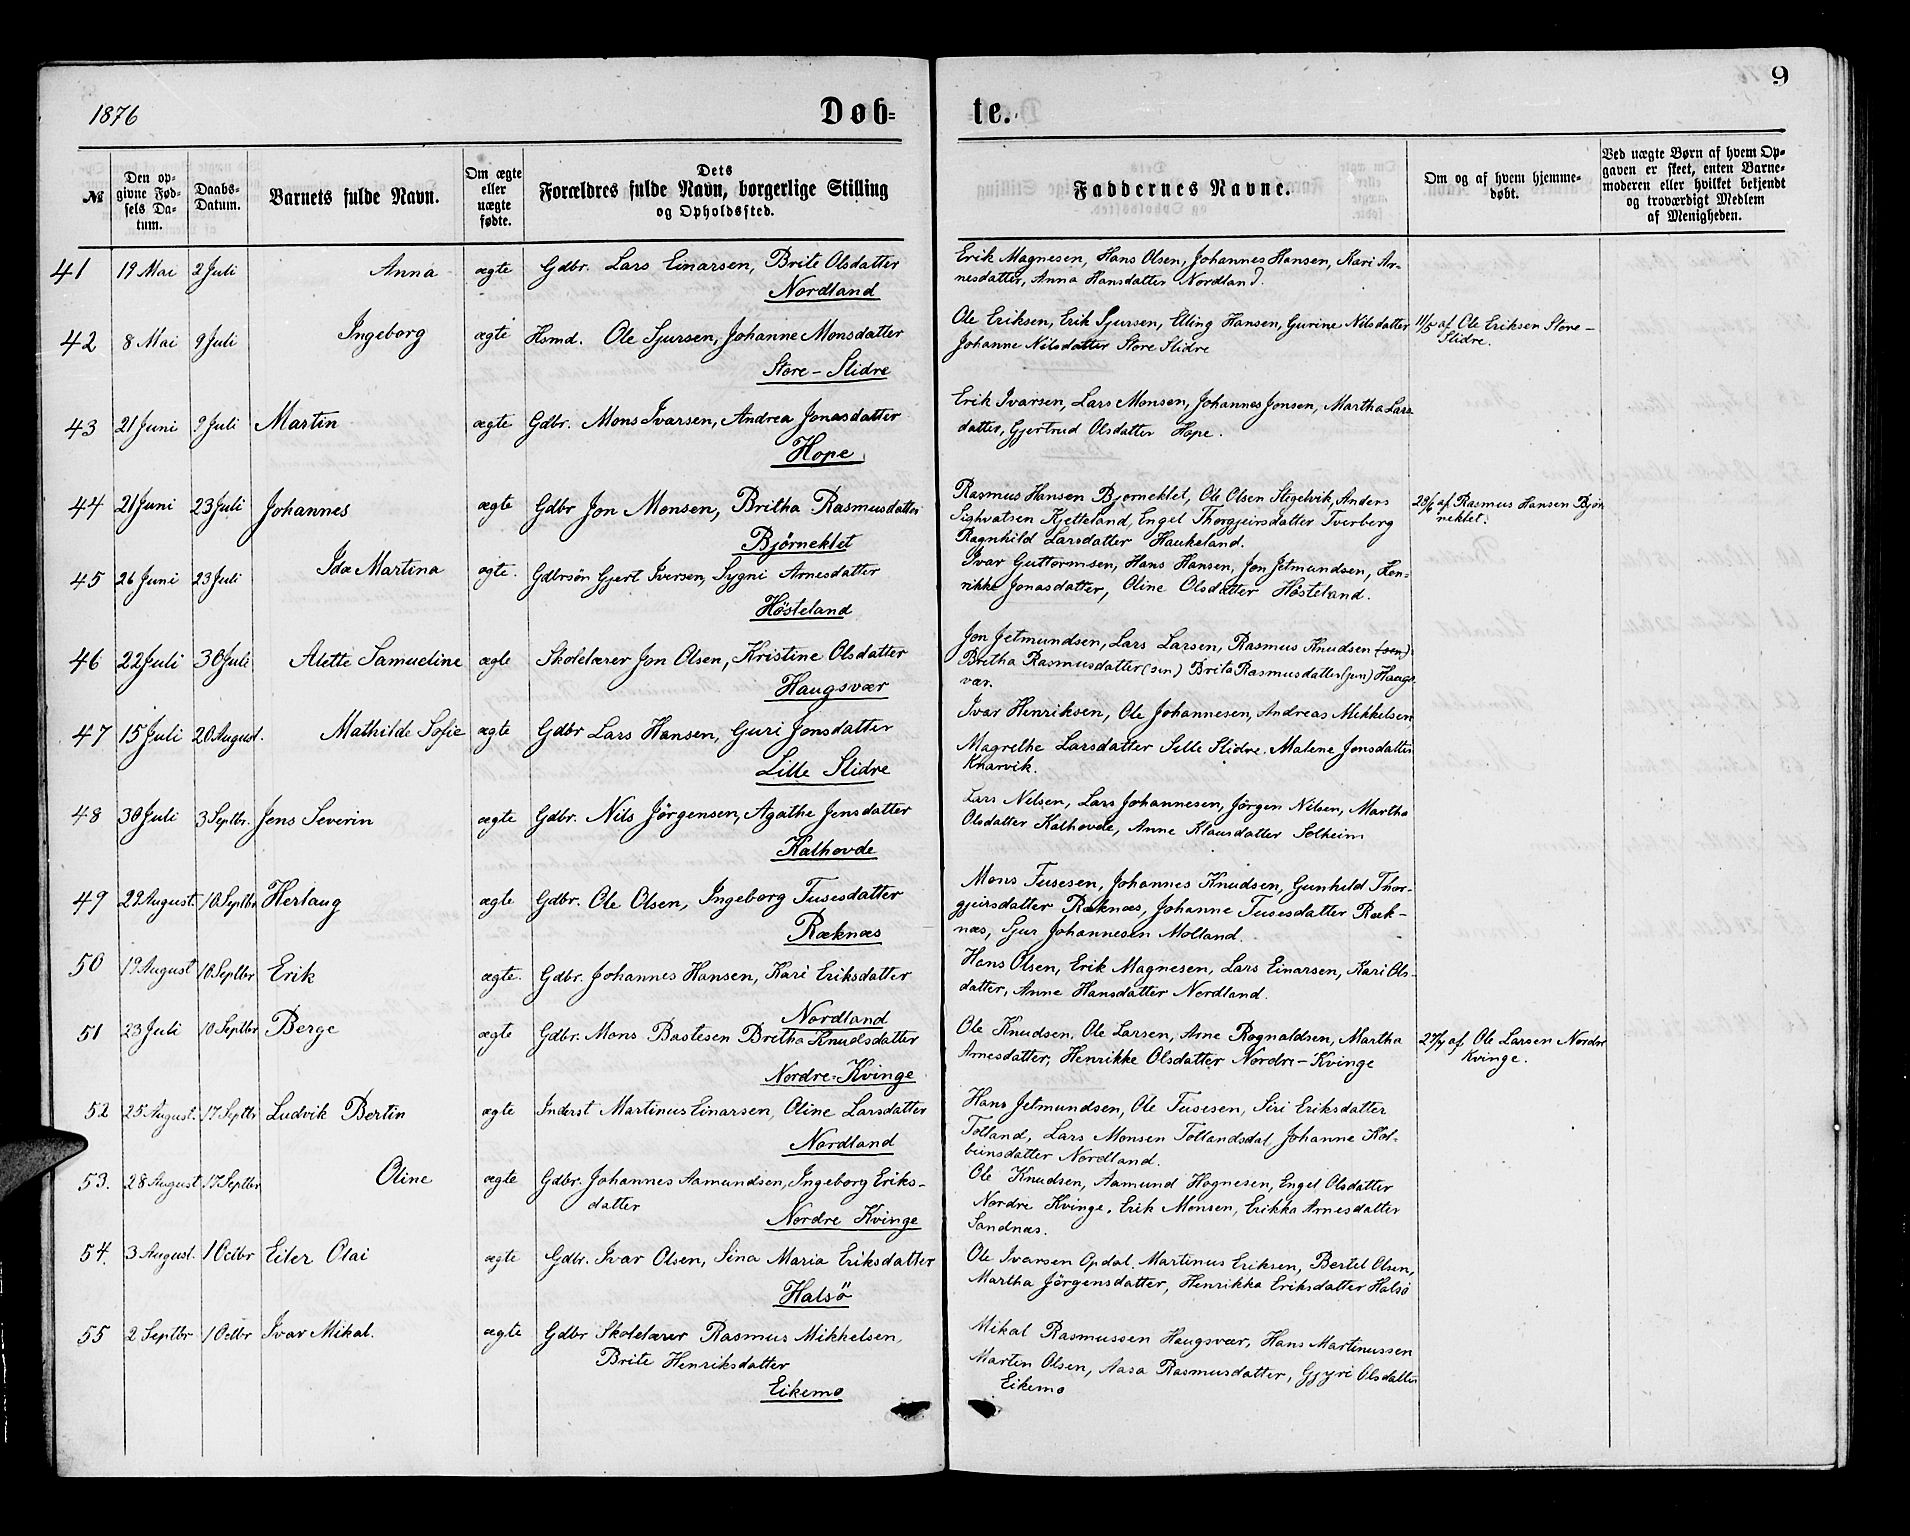 1876
Døb=
te.
9
№
Den op-
givne Fød-
sels Da-
tum.
Daabs-
Datum.
Barnets fulde Navn.
Om ægte
eller
uægte
fødte.
Dets
Forældres fulde Navn, borgerlige Stilling
og Opholdssted.
Faddernes Navne.
Om og af hvem hjemme-
døbt.
Ved uægte Børn af hvem Op-
gaven er skeet, enten Barne-
moderen eller hvilket betjendt
og troværdigt Medlem
af Menigheden.
41 19 Mai 2 Juli Anna ægte Gdbr. Lars Einarsen, Brite Olsdatter
Nordland
Erik Magnesen, Hans Olsen, Johannes Hansen, Kari Ar-
nesdatter, Anna Hansdatter Nordland.
42 8 Mai 9 Juli Ingeborg ægte Hsmd. Ole Sjursen, Johanne Monsdatter
Store-Slidre
Ole Eriksen, Erik Sjursen, Elling Hansen, Gurine Nilsdatter
Johanne Nilsdatter Store Slidre
11/5 af Ole Eriksen Store-
Slidre.
43 21 Juni 9 Juli Martin ægte Gdbr. Mons Ivarsen, Andrea Jonasdatter
Hope
Erik Ivarsen, Lars Monsen, Johannes Jonsen, Martha Lars
datter, Gjertrud Olsdatter Hope.
44 21 Juni 23 Juli Johannes ægte Gdbr Jon Monsen, Britha Rasmusdatter
Bjørneklet
Rasmus Hansen Bjorneklet, Ole Olsen Stigelvik, Anders
Sighvatsen Kjetteland, Engel Thorgjeirsdatter Tverberg
Ragnhild Larsdatter Haukeland.
29/6 af Rasmus Hansen Bjør
neklet.
45 26 Juni 23 Juli Ida Martina ægte. Gdbrsøn Gjert Iversen, Sygni Arnesdatter
Høsteland
Ivar Guttormsen, Hans Hansen, Jon Jetmundsen, Hen-
rikke Jonasdatter, Oline Olsdatter Høsteland.
46 22 Juli 30 Juli Alette Samueline ægte Skolelærer Jon Olsen, Kristine Olsdatter
Haugsvær
Jon Jetmundsen, Lars Larsen, Rasmus Knudsen (sen)
Britha Rasmusdatter (sen) Brita Rasmusdatter (jun) Haugs
vær.
47 15 Juli 20 August. Mathilde Sofie ægte Gdbr Lars Hansen, Guri Jonsdatter
Lille Slidre
Ivar Henriksen, Ole Johannesen, Andreas Mikkelsen
Magrethe Larsdatter Lille Slidre. Malene Jonsdatter
Knarvik.
48 30 Juli 3 Septbr. Jens Severin ægte Gdbr. Nils Jørgensen, Agathe Jensdatter
Kalhovde
Lars Nilsen, Lars Johannesen, Jørgen Nilsen, Martha
Olsdatter Kalhovde, Anne Klausdatter Solheim
49 29 August. 10 Septbr Herlaug ægte Gdbr. Ole Olsen, Ingeborg Fusesdatter
Ræknæs
Mons Fusesen, Johannes Knudsen, Gunhild Thor-
gjeirsdatter Ræknæs, Johanne Fusesdatter Ræk-
næs, Sjur Johannesen Molland.
50 19 August 10 Septbr Erik ægte. Gdbr. Johannes Hansen, Kari Eriksdatter
Nordland
Hans Olsen, Erik Magnesen, Lars Einarsen, Kari Ols-
datter, Anne Hansdatter Nordland.
51 23 Juli 10 Septbr Berge ægte Gdbr. Mons Bastesen Britha Knudsdatter
Nordre-Kvinge
Ole Knudsen, Ole Larsen, Arne Rognaldsen, Martha
Arnesdatter, Henrikke Olsdatter Nordre-Kvinge
27/7 af Ole Larsen Nordre
Kvinge.
52 25 August. 17 Septbr Ludvik Bertin ægte Inderst Martinus Einarsen, Oline Larsdatter
Nordland
Hans Jetmundsen, Ole Fusesen, Siri Eriksdatter
Totland, Lars Monsen Totlandsdal, Johanne Kol-
beinsdatter Nordland.
53. 28 August 17 Septbr Oline ægte Gdbr. Johannes Aamundsen, Ingeborg Eriks-
datter
Nordre Kvinge
Ole Knudsen, Aamund Hognesen, Engel Olsdatter
Nordre Kvinge, Erik Monsen, Erikka Arnesdatter
Sandnæs.
54. 3 August. 1 Octbr Eiler Olai ægte Gdbr. Ivar Olsen, Sina Maria Eriksdatter
Halsö
Ole Ivarsen Opdal, Martinus Eriksen, Bertel Olsen,
Martha Jørgensdatter, Henrikka Eriksdatter Halsø
55 2 Septbr 1 Octbr Ivar Mikal. ægte Gdbr Skolelærer Rasmus Mikkelsen,
Brite Henriksdatter
Eikemo
Mikal Rasmussen Haugsvær, Hans Martinussen
Marten Olsen, Aasa Rasmusdatter, Gjyri Olsdatter
Eikemo